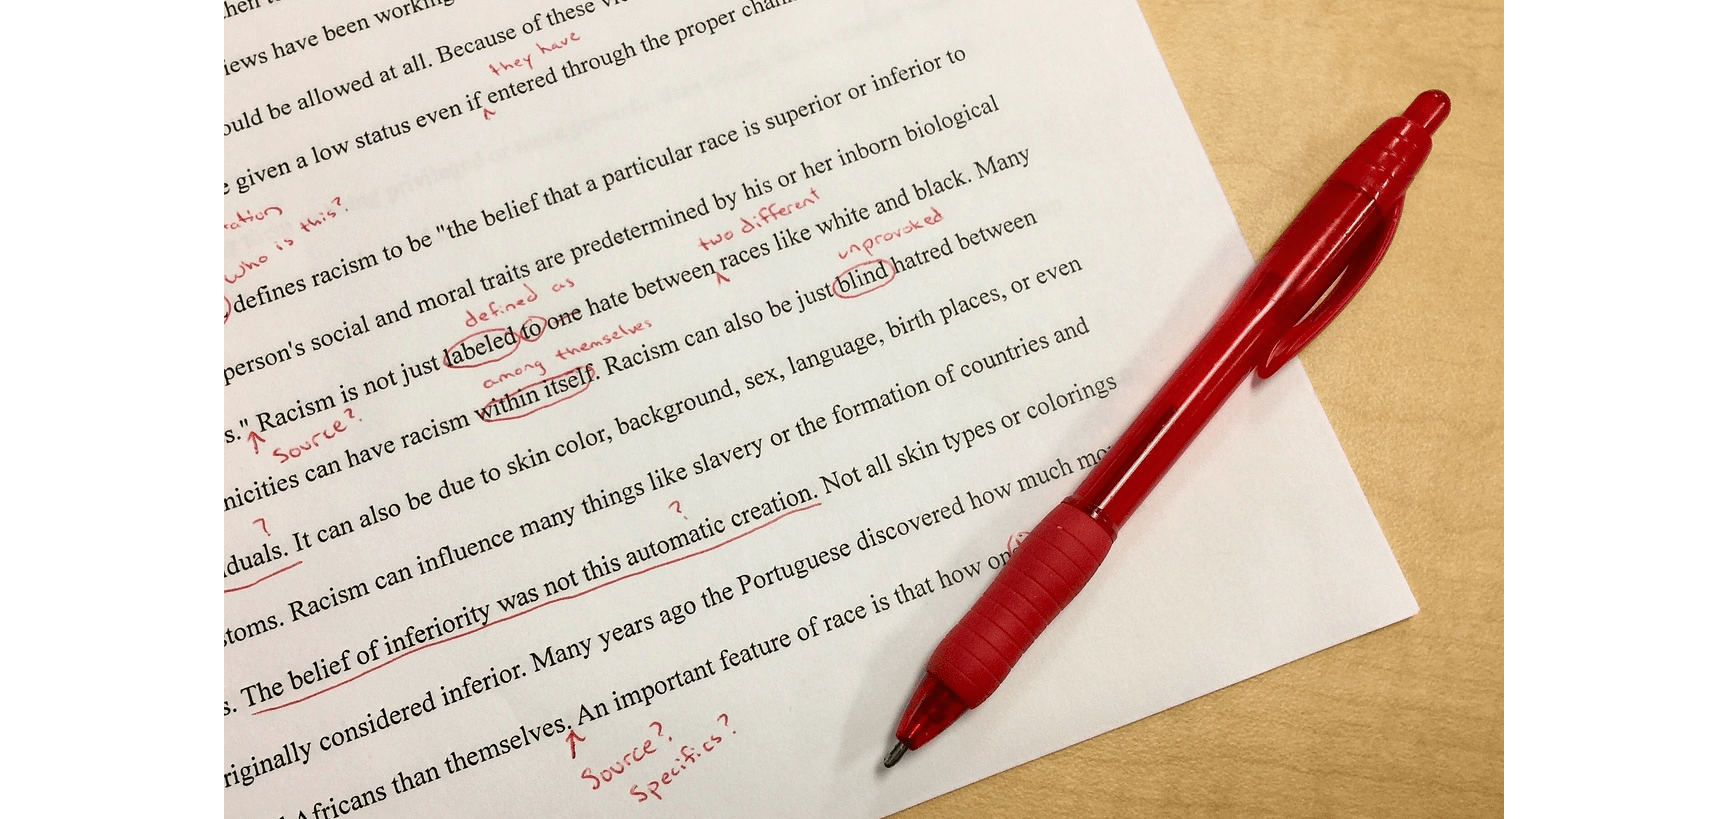 iews have been working
ould be allowed at all. Because of these
they have
e given a low status even if entered through the proper
ration
who is this?
defines racism to be "the belief that a particular race is superior or inferior to
person's social and moral traits are predetermined by his or her inborn biological
two different
defined as
s." Racism is not just labeled to one hate between races like white and black. Many
Source?
among themselves
unprovoked
nicities can have racism within itself. Racism can also be just blind hatred between
?
duals. It can also be due to skin color, background, sex, language, birth places, or even
stoms. Racism can influence many things like slavery or the formation of countries and
?
s. The belief of inferiority was not this automatic creation. Not all skin types or colorings
riginally considered inferior. Many years ago the Portuguese discovered how much
Africans than themselves. An important feature of race is that how
Source?
Specifics?